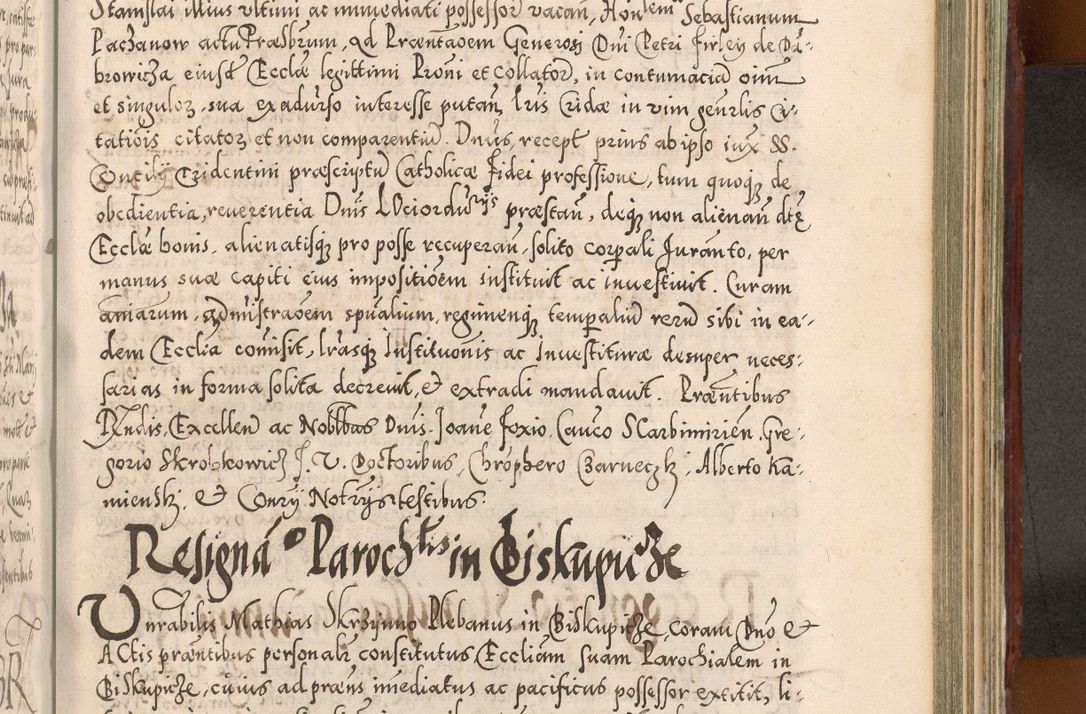 Stanislai illius vltimi ac immediati possessor vacan, Honlem Sebastianum
Paczanow actu Præsbrum, qd Præntaoem Generosi Dni Petri Firley de Da-
browicza eiusd Ecclæ legittimi Proni et Collator, in contumacia oim
et singuloz sua exaduerso interesse putan, lris Cridæ in vim genrlis Ci-
tatiois citatoz et non comparentiu. Dnus recept prius ab ipso iux SS.
Concilij Tridentini præscriptu Catholicæ Fidei professione, tum quoqz de
obedientia, reuerentia Dnis præstan, deqz non alienan dtæ
Ecclæ bonis, alienatisqz pro posse recuperan, solito corpali Juranto, per
manus suæ capiti eius impositioem instituit ac inuestiuit. Curam
aniarum, admistraoem spualium, regimenqz tempaliu reru sibi in ea-
dem Ecclia comisit, lrasqz Instituonis ac Inuestituræ desuper neces-
sarias in forma solita decreuit, et extradi mandauit. Præntibus
Rndis, Excellen ac Noblbas Dnis Joane Foxio, Canco Scarbimirien, Gre-
gorio Skrobkowicz J. V. Doctoribus, Chrophero Czarneczk, Alberto Ka-
miensk, et Conry Notrijs testibus.
Resigna Parochlis in Biskupicze
Vnrabilis Mathias Skrzynno Plebanus in Biskupicze, coram Dno et
Actis præntibus personalr constitutus, Eccliam suam Parochialem in
Biskupicze, cuius ad præns imediatus ac pacificus possessor extitit, li-